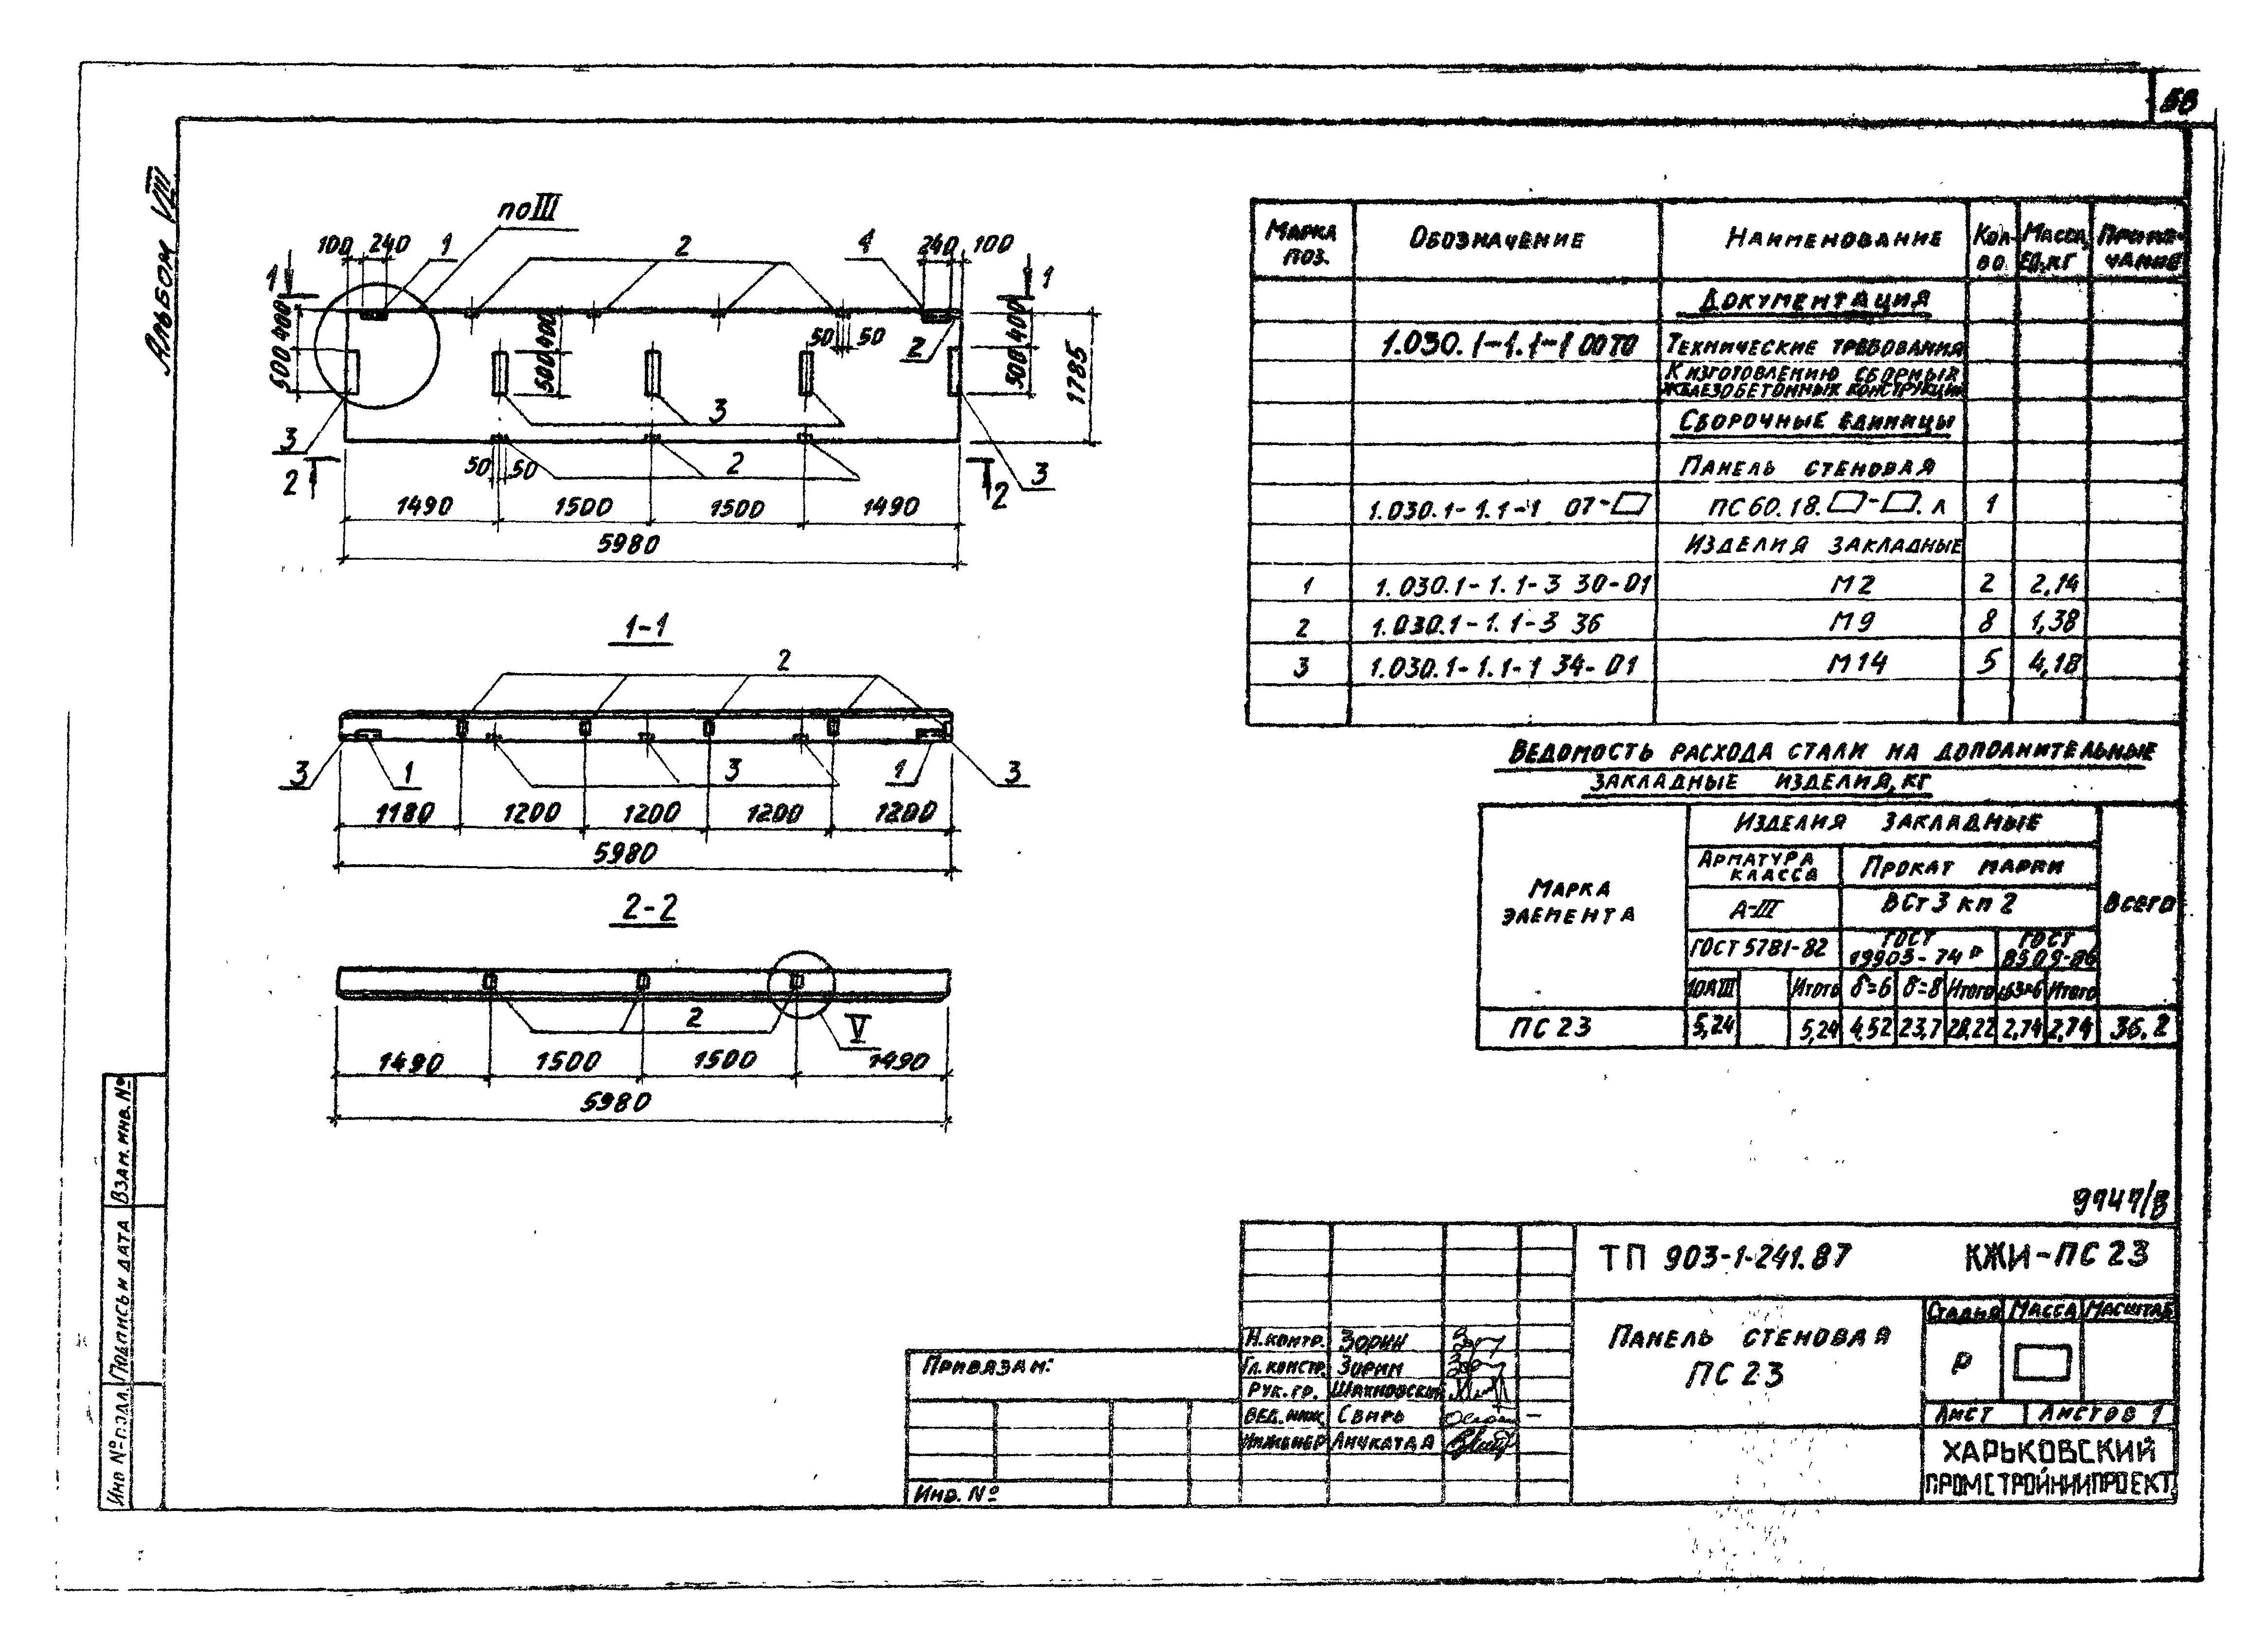 58
Альбом VIII
по III
100 240 1 2 4 240 100
1 1
400 500 400 500 50 50 2 400 500 1785
3 3 3
2 50 50 2 2
1490 1500 1500 1490
5980
1-1
2
3 1 3 1 3
1180 1200 1200 1200 1200
5980
2-2
2 V
1490 1500 1500 1490
5980
Марка поз. Обозначение Наименование Кол-во Масса ед., кг Примечание
Документация
1.030.1-1.1-1 00ТО Технические требования
к изготовлению сборных
железобетонных конструкций
Сборочные единицы
Панель стеновая
1.030.1-1.1-1 07-▱ ПС60.18.▱-▱.л 1
Изделия закладные
1 1.030.1-1.1-3 30-01 М2 2 2,14
2 1.030.1-1.1-3 36 М9 8 1,38
3 1.030.1-1.1-1 34-01 М14 5 4,18
Ведомость расхода стали на дополнительные
закладные изделия, кг
Марка элемента
Изделия закладные
Всего
Арматура класса Прокат марки
А-III ВСт3кп2
ГОСТ 5781-82 ГОСТ 19903-74* ГОСТ 8509-86
10АIII Итого δ=6 δ=8 Итого Итого
ПС23 5,24 5,24 4,52 23,7 28,22 2,74 2,74 36,2
Взам. инв. №
Подпись и дата
Инв № подл.
ТП 903-1-241.87 КЖИ-ПС23
Панель стеновая
ПС23
Стадия Масса Масштаб
Р
Лист Листов 1
Харьковский
Промстройниипроект
Н.контр. Зорин
Гл.констр. Зорин
Рук.гр. Шахновский
Вед.инж. Свирь
Инженер
Привязан:
Инв. №